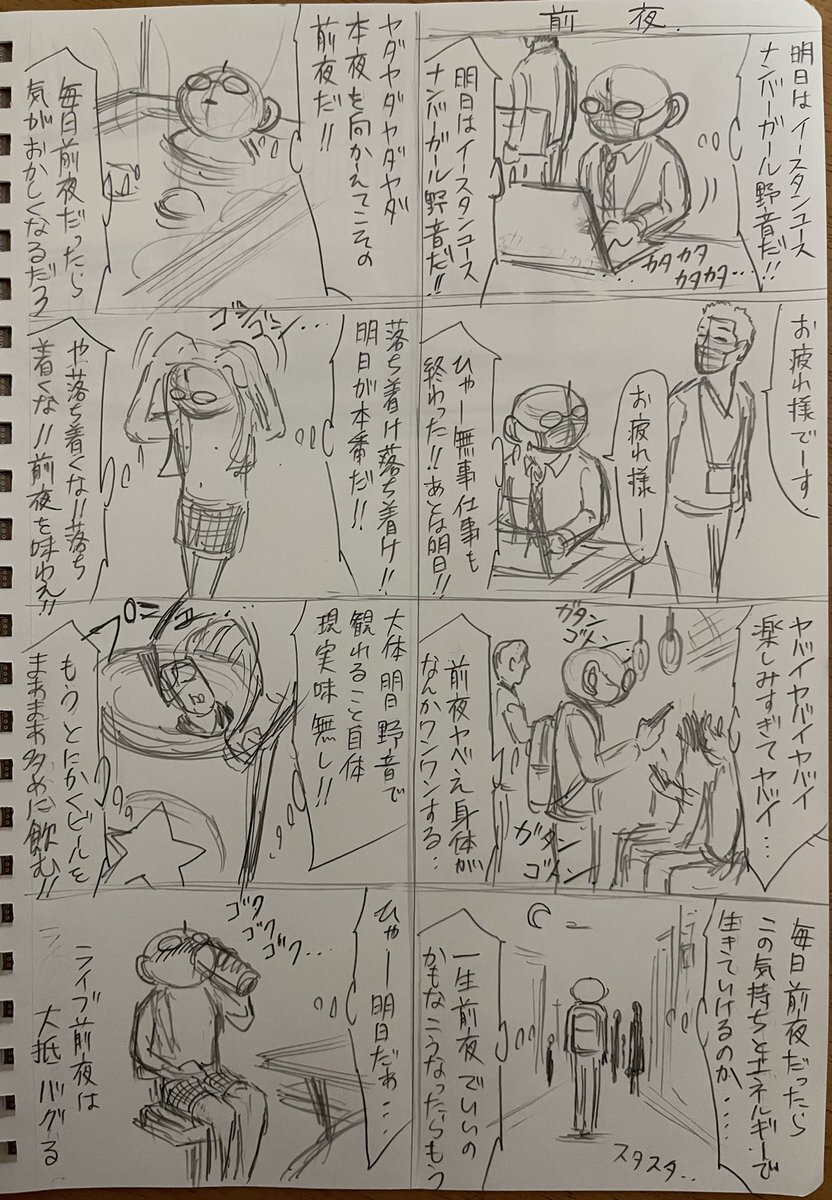 前夜
明日はイースタンユース
ナンバーガール野音だ!!
明日はイースタンユース
ナンバーガール野音だ!!
カタカタ
カタカタ…
お疲れ様でーす.
お疲れ様ー…
ひゃー無事仕事も
終わった!!あとは明日!!
ヤバイヤバイヤバイ
楽しみすぎてヤバイ…
ガタン
ゴトン
ガタン
ゴトン
前夜ヤベえ身体が
なんかワンワンする…
毎日前夜だったら
この気持ちとエネルギーで
生きていけるのか…
一生前夜でいいの
かもなこうなったらもう
スタスタ…
ヤダヤダヤダヤダ
本夜を向かえてこその
前夜だ!!
毎日前夜だったら
気がおかしくなるだろ
ゴシゴシ…
落ち着け落ち着け!!
明日が本番だ!!
や、落ち着くな!!落ち
着くな!!前夜を味わえ!!
大体明日野音で
観れること自体
現実味無し!!
もうとにかくビールを
まあまあ多めに飲む!!
ゴク
ゴク
ゴク…
ひゃー明日だぁ…
ライブ前夜は
大抵バグる